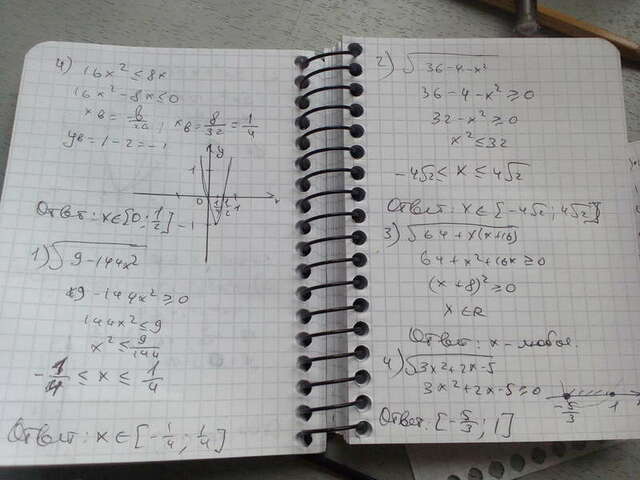 4) 16x² ≤ 8x
16x² - 8x ≤ 0
xв = в/2a ; xв = 8/32 = 1/4
yв = 1 - 2 = -1
y
1
0
1
-1
Ответ: x∈[0; 1/2]
1) √9-144x²
9-144x² ≥ 0
144x² ≤ 9
x² ≤ 9/144
-1/4 ≤ x ≤ 1/4
Ответ: x∈[-1/4; 1/4]
2) √36-4-x²
36-4-x² ≥ 0
32-x² ≥ 0
x² ≤ 32
-4√2 ≤ x ≤ 4√2
Ответ: x∈[-4√2; 4√2]
3) √64+x(x+16)
64+x²+16x ≥ 0
(x+8)² ≥ 0
x∈R
Ответ: x - любое.
4) √3x²+2x-5
3x²+2x-5 ≥ 0
-5/3 1
Ответ: [-5/3; 1]